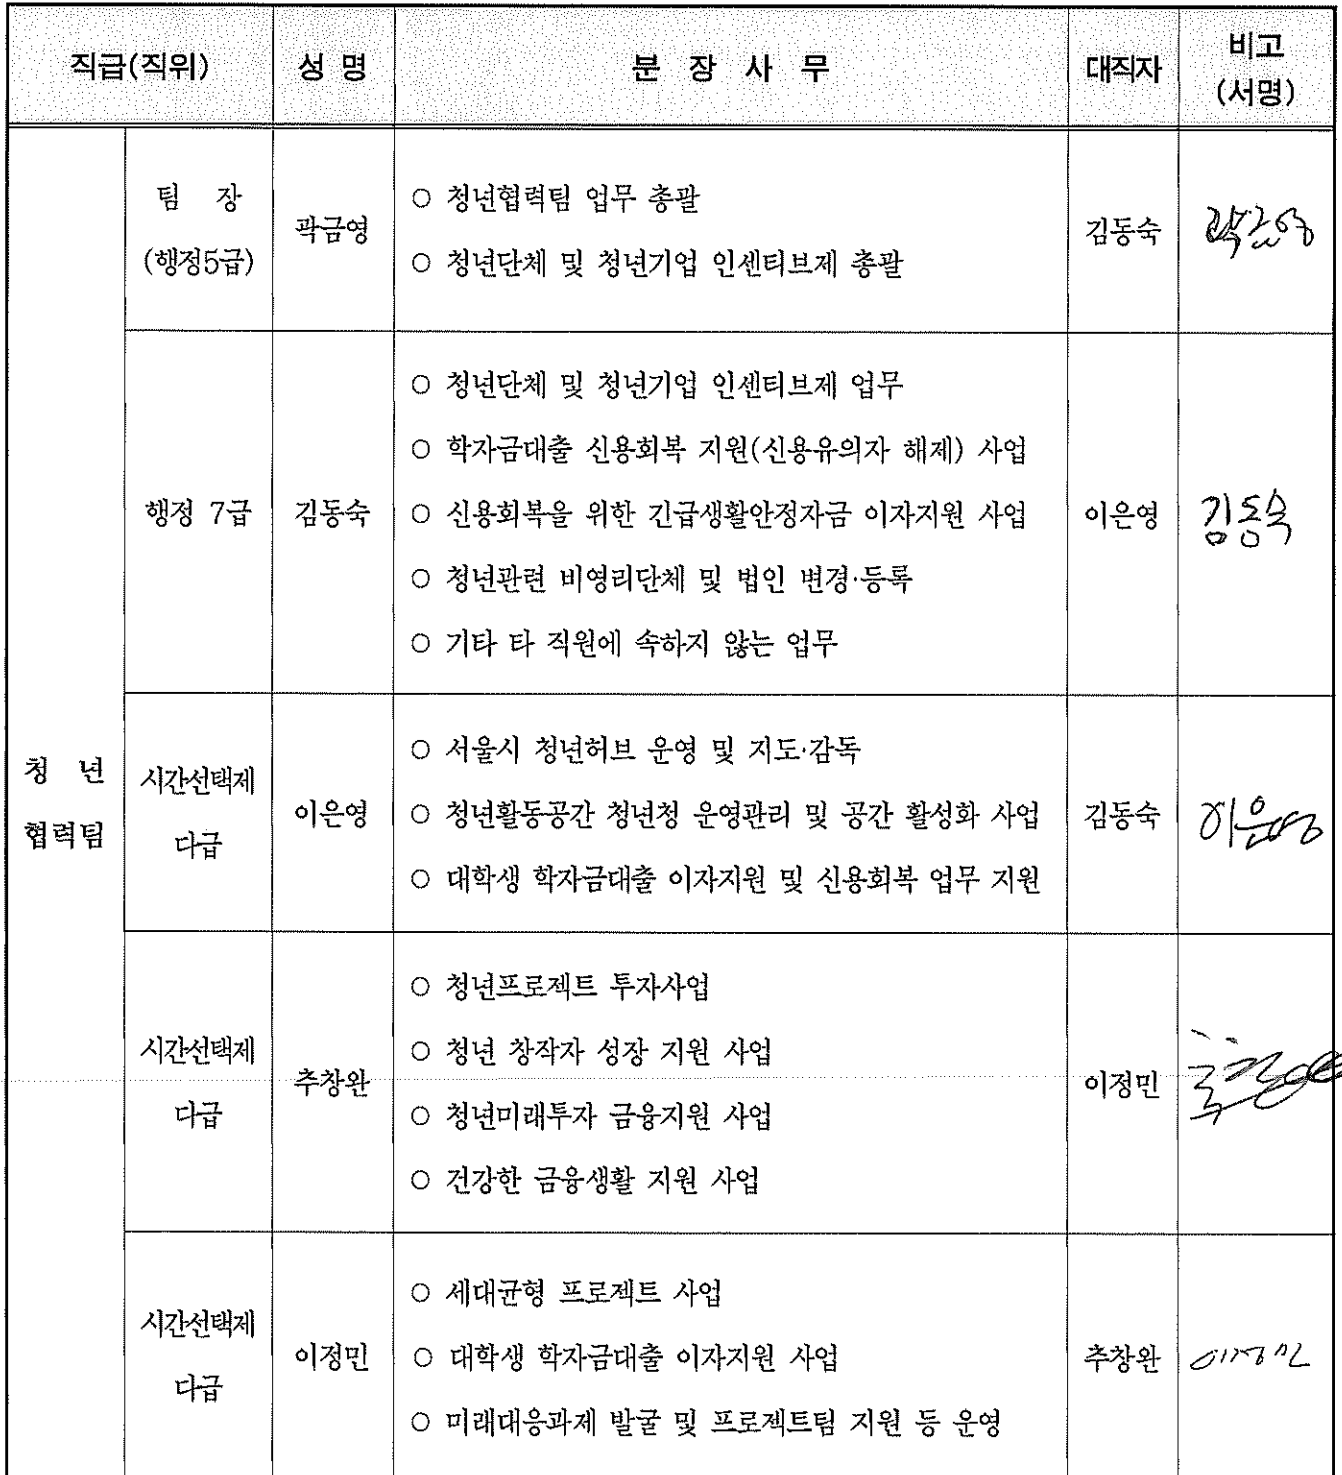 직급(직위) 성 명 분 장 사 무 대직자 비고
(서명)
청 년
협력팀
팀 장
(행정5급)
곽금영
○ 청년협력팀 업무 총괄
○ 청년단체 및 청년기업 인센티브제 총괄
김동숙
곽금영
행정 7급
김동숙
○ 청년단체 및 청년기업 인센티브제 업무
○ 학자금대출 신용회복 지원(신용유의자 해제) 사업
○ 신용회복을 위한 긴급생활안정자금 이자지원 사업
○ 청년관련 비영리단체 및 법인 변경·등록
○ 기타 타 직원에 속하지 않는 업무
이은영
김동숙
시간선택제
다급
이은영
○ 서울시 청년허브 운영 및 지도·감독
○ 청년활동공간 청년청 운영관리 및 공간 활성화 사업
○ 대학생 학자금대출 이자지원 및 신용회복 업무 지원
김동숙
이은영
시간선택제
다급
추창완
○ 청년프로젝트 투자사업
○ 청년 창작자 성장 지원 사업
○ 청년미래투자 금융지원 사업
○ 건강한 금융생활 지원 사업
이정민
추창완
시간선택제
다급
이정민
○ 세대균형 프로젝트 사업
○ 대학생 학자금대출 이자지원 사업
○ 미래대응과제 발굴 및 프로젝트팀 지원 등 운영
추창완
이정민